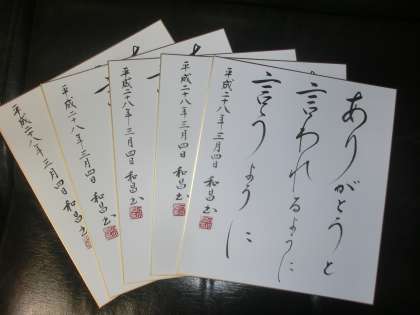 ありがとうと
言われるように
言うように
平成二十八年三月四日 和昌書
平成二十八年三月四日 和昌書
平成二十八年三月四日 和昌書
平成二十八年三月四日 和昌書
平成二十八年三月四日 和昌書